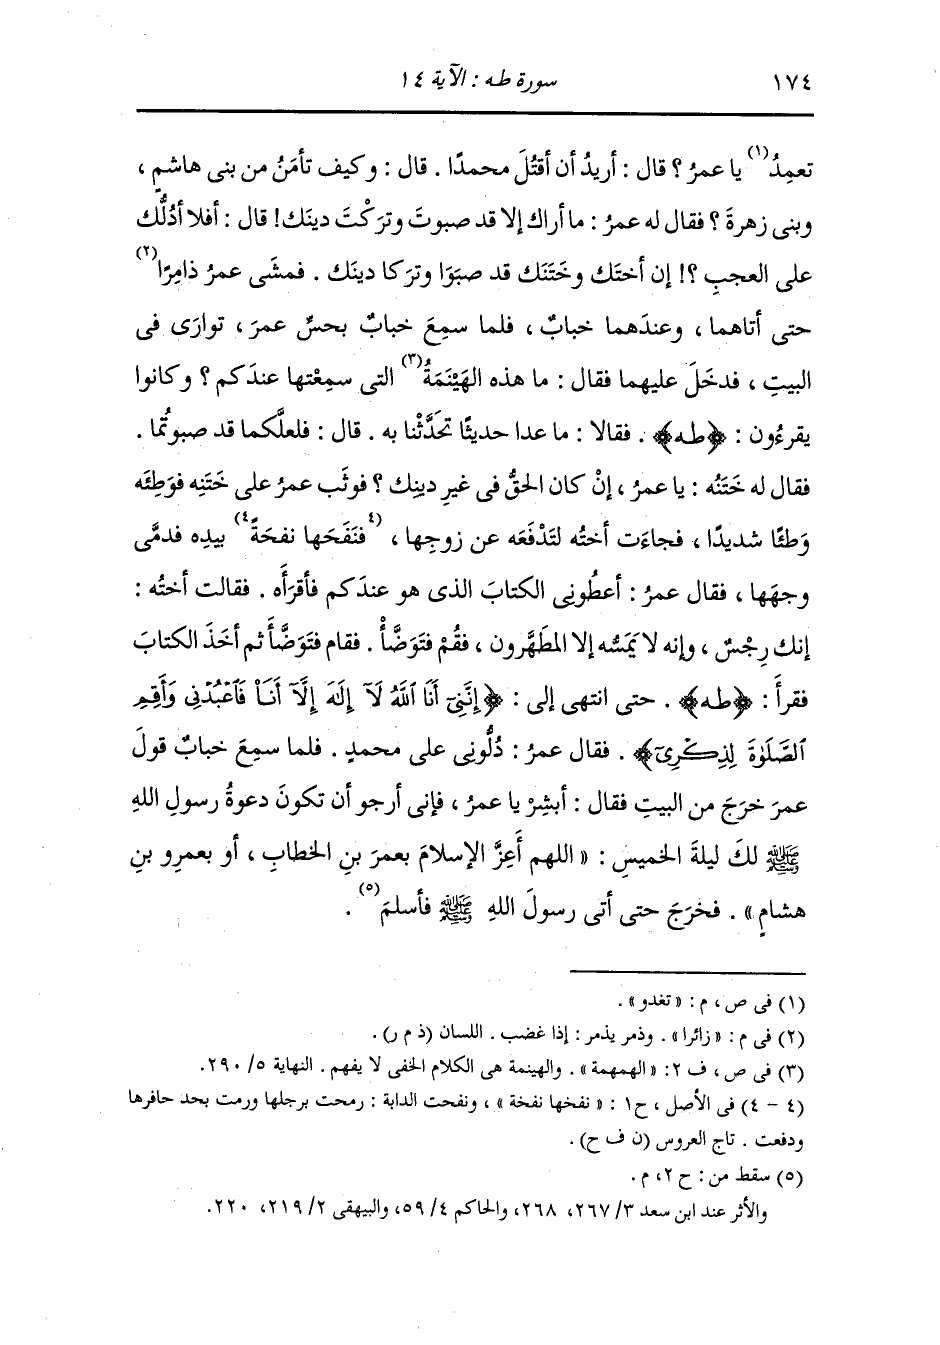 ١٧٤ سورة طه : الآية ١٤
تعمِدُ(١) يا عمرُ ؟ قال : أريدُ أن أقتُلَ محمدًا . قال : وكيف تأمَنُ من بنى هاشمٍ ،
وبنى زهرةَ ؟ فقال له عمرُ : ما أراك إلا قد صبوتَ وترَكْتَ دينَك! قال : أفلا أدُلُّك
على العجبِ ؟! إن أختَك وخَتَنَك قد صبَوَا وترَكا دينَك . فمشَى عمرُ ذامِرًا(٢)
حتى أتاهما ، وعندَهما خبابٌ ، فلما سمِعَ خبابٌ بحسِّ عمرَ ، توارَى فى
البيتِ ، فدخَلَ عليهما فقال : ما هذه الهَيْنَمَةُ(٣) التى سمِعْتها عندَكم ؟ وكانوا
يقرءُون : ﴿طه﴾ . فقالا : ما عدا حديثًا تحَدَّثْنا به . قال : فلعلَّكما قد صبوتُما .
فقال له خَتَنُه : يا عمرُ ، إنْ كان الحقُّ فى غيرِ دينِك ؟ فوثَب عمرُ على خَتَنِه فوَطِئَه
وَطئًا شديدًا ، فجاءَت أختُه لتَدْفَعَه عن زوجِها ، (٤فنَفَحَها نفحَةً٤) بيدِه فدمَّى
وجهَها ، فقال عمرُ : أعطُونِى الكتابَ الذى هو عندَكم فأقرَأَه . فقالت أختُه :
إنك رِجْسٌ ، وإنه لا يَمَسُّه إلا المطَهَّرون ، فقُمْ فتَوَضَّأْ . فقام فتَوَضَّأَ ثم أخَذَ الكتابَ
فقرأَ : ﴿طه﴾ . حتى انتهى إلى : ﴿إِنَّنِىٓ أَنَا ٱللَّهُ لَآ إِلَٰهَ إِلَّآ أَنَا۠ فَٱعْبُدْنِى وَأَقِمِ
ٱلصَّلَوٰةَ لِذِكْرِىٓ﴾ . فقال عمرُ : دُلُّونِى على محمدٍ . فلما سمِعَ خبابٌ قولَ
عمرَ خرَجَ من البيتِ فقال : أبشِرْ يا عمرُ ، فإنى أرجو أن تكونَ دعوةُ رسولِ اللهِ
ﷺ لكَ ليلةَ الخميسِ : « اللهم أَعِزَّ الإسلامَ بعمرَ بنِ الخطابِ ، أو بعمرِو بنِ
هشامٍ » . فخرَجَ حتى أتى رسولَ اللهِ ﷺ فأسلمَ(٥) .
(١) فى ص ، م : « تغدو » .
(٢) فى م : « زائرا » . وذمر يذمر : إذا غضب . اللسان (ذ م ر) .
(٣) فى ص ، ف ٢: « الهمهمة » . والهينمة هى الكلام الخفى لا يفهم . النهاية ٥/ ٢٩٠.
(٤ - ٤) فى الأصل ، ح١ : « نفخها نفخة » ، ونفحت الدابة : رمحت برجلها ورمت بحد حافرها
ودفعت . تاج العروس (ن ف ح) .
(٥) سقط من : ح ٢، م .
والأثر عند ابن سعد ٣/ ٢٦٧، ٢٦٨، والحاكم ٤/ ٥٩، والبيهقى ٢/ ٢١٩، ٢٢٠.